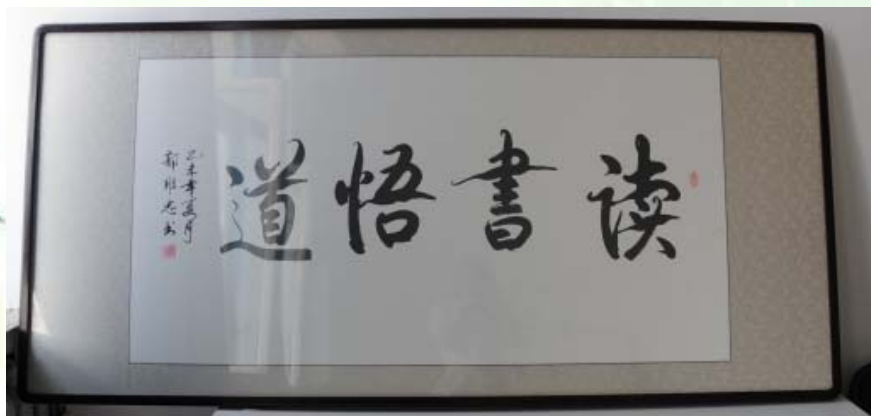 读書悟道
乙未年夏月
郭維志书